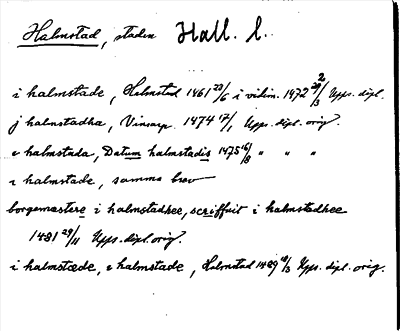 Halmstad, staden Hall. l.
i halmstade, Halmstad 1461 23/6 i vidim. 1472 29/3 Upps. dipl.
j halmstadha, Vinsarp. 1474 17/1 Upps. dipl. orig.
e halmstada, Datum halmstadis 1475 16/8 " " "
i halmstade, samma brev
borgemæstere i halmstadhee, scriffuit i halmstadhee
1481 29/11 Upps. dipl. orig.
i halmstæde, e halmstade, Halmstad 1489 18/3 Upps. dipl. orig.